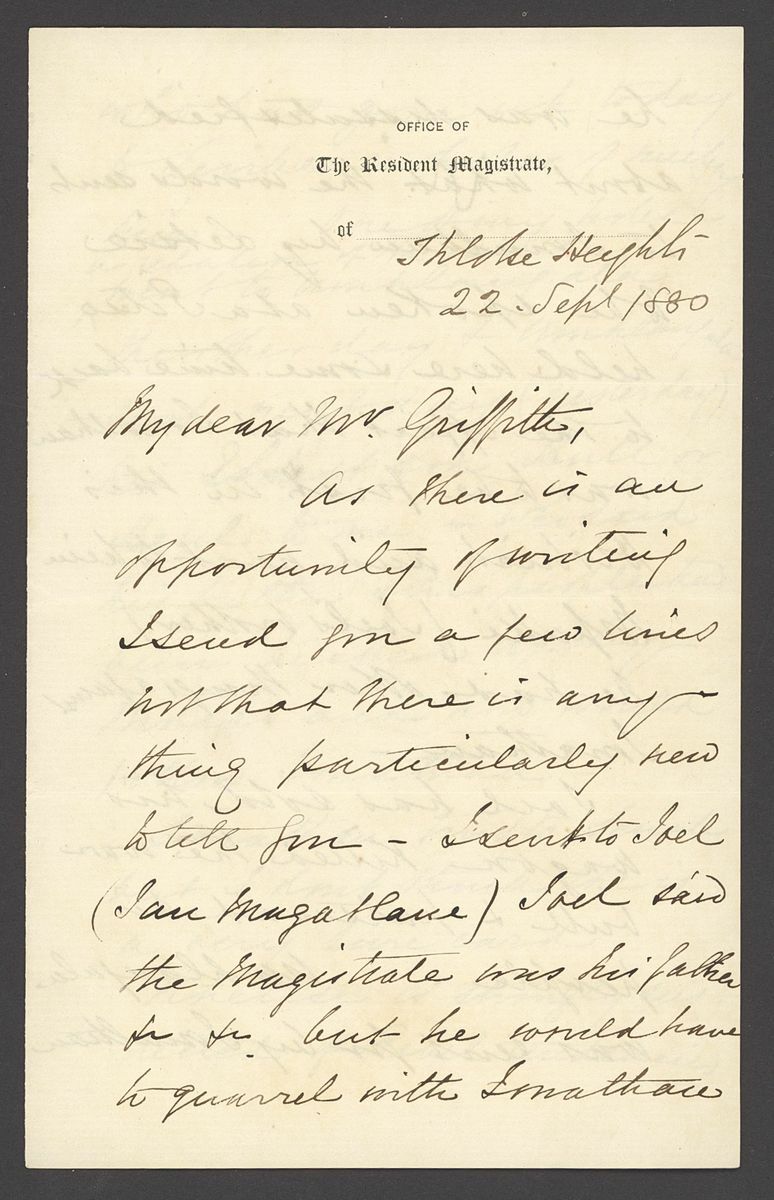 OFFICE OF
The Resident Magistrate,
of Thlotse Heights
22. Sept 1880
My dear Mr. Griffith,
As there is an
opportunity of writing
I send you a few lines
not that there is any-
thing particularly new
to tell you - I sent to Joel
(Jan Magatlane) Joel said
the Magistrate was his father
&c &c. but he would have
to quarrel with Jonathan